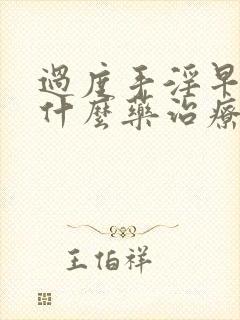 過度手淫早
什麼藥治療
王伯祥